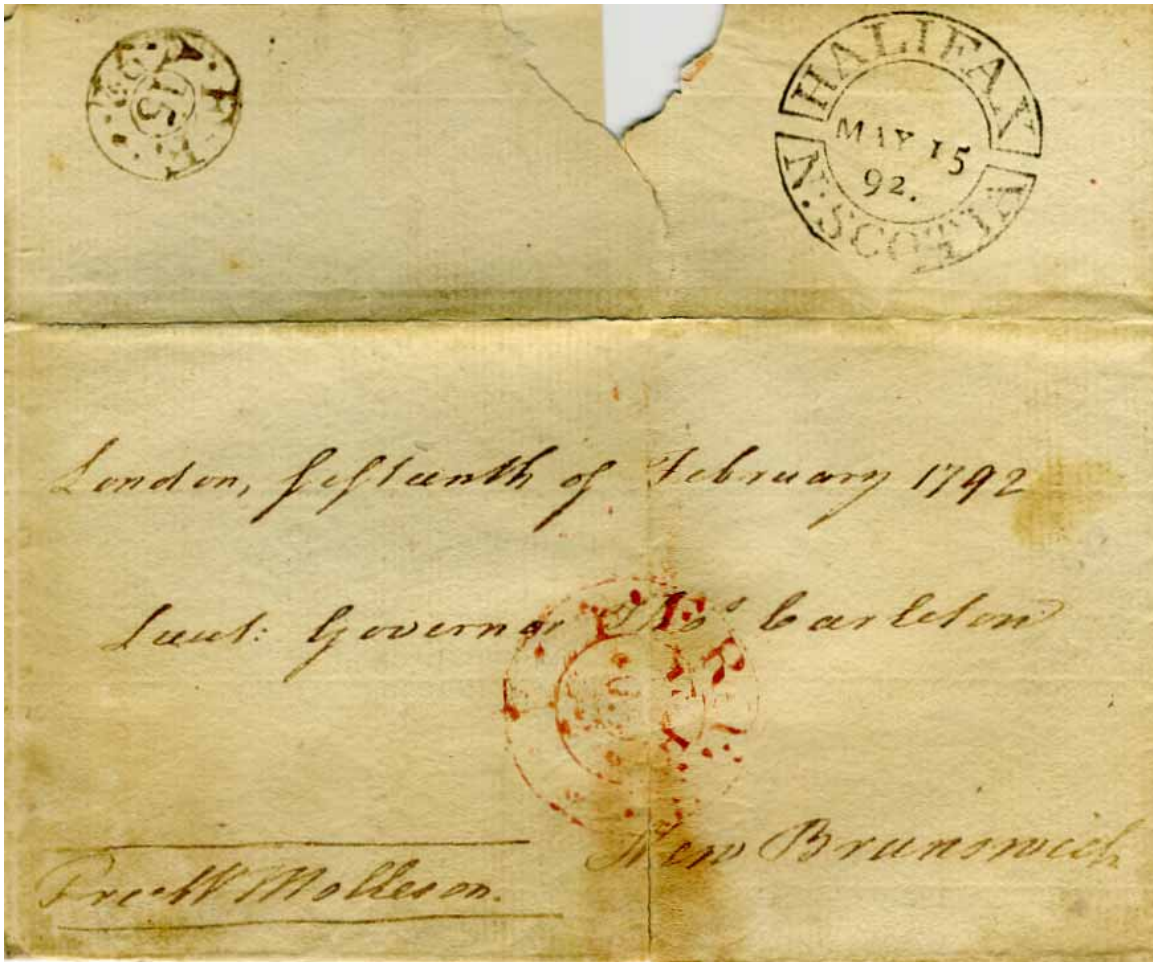 15
HALIFAX
MAY 15
92.
N. SCOTIA
London, fifteenth of February 1792
Lieut: Governor Thos Carleton
New Brunswick
Free W Molleson.